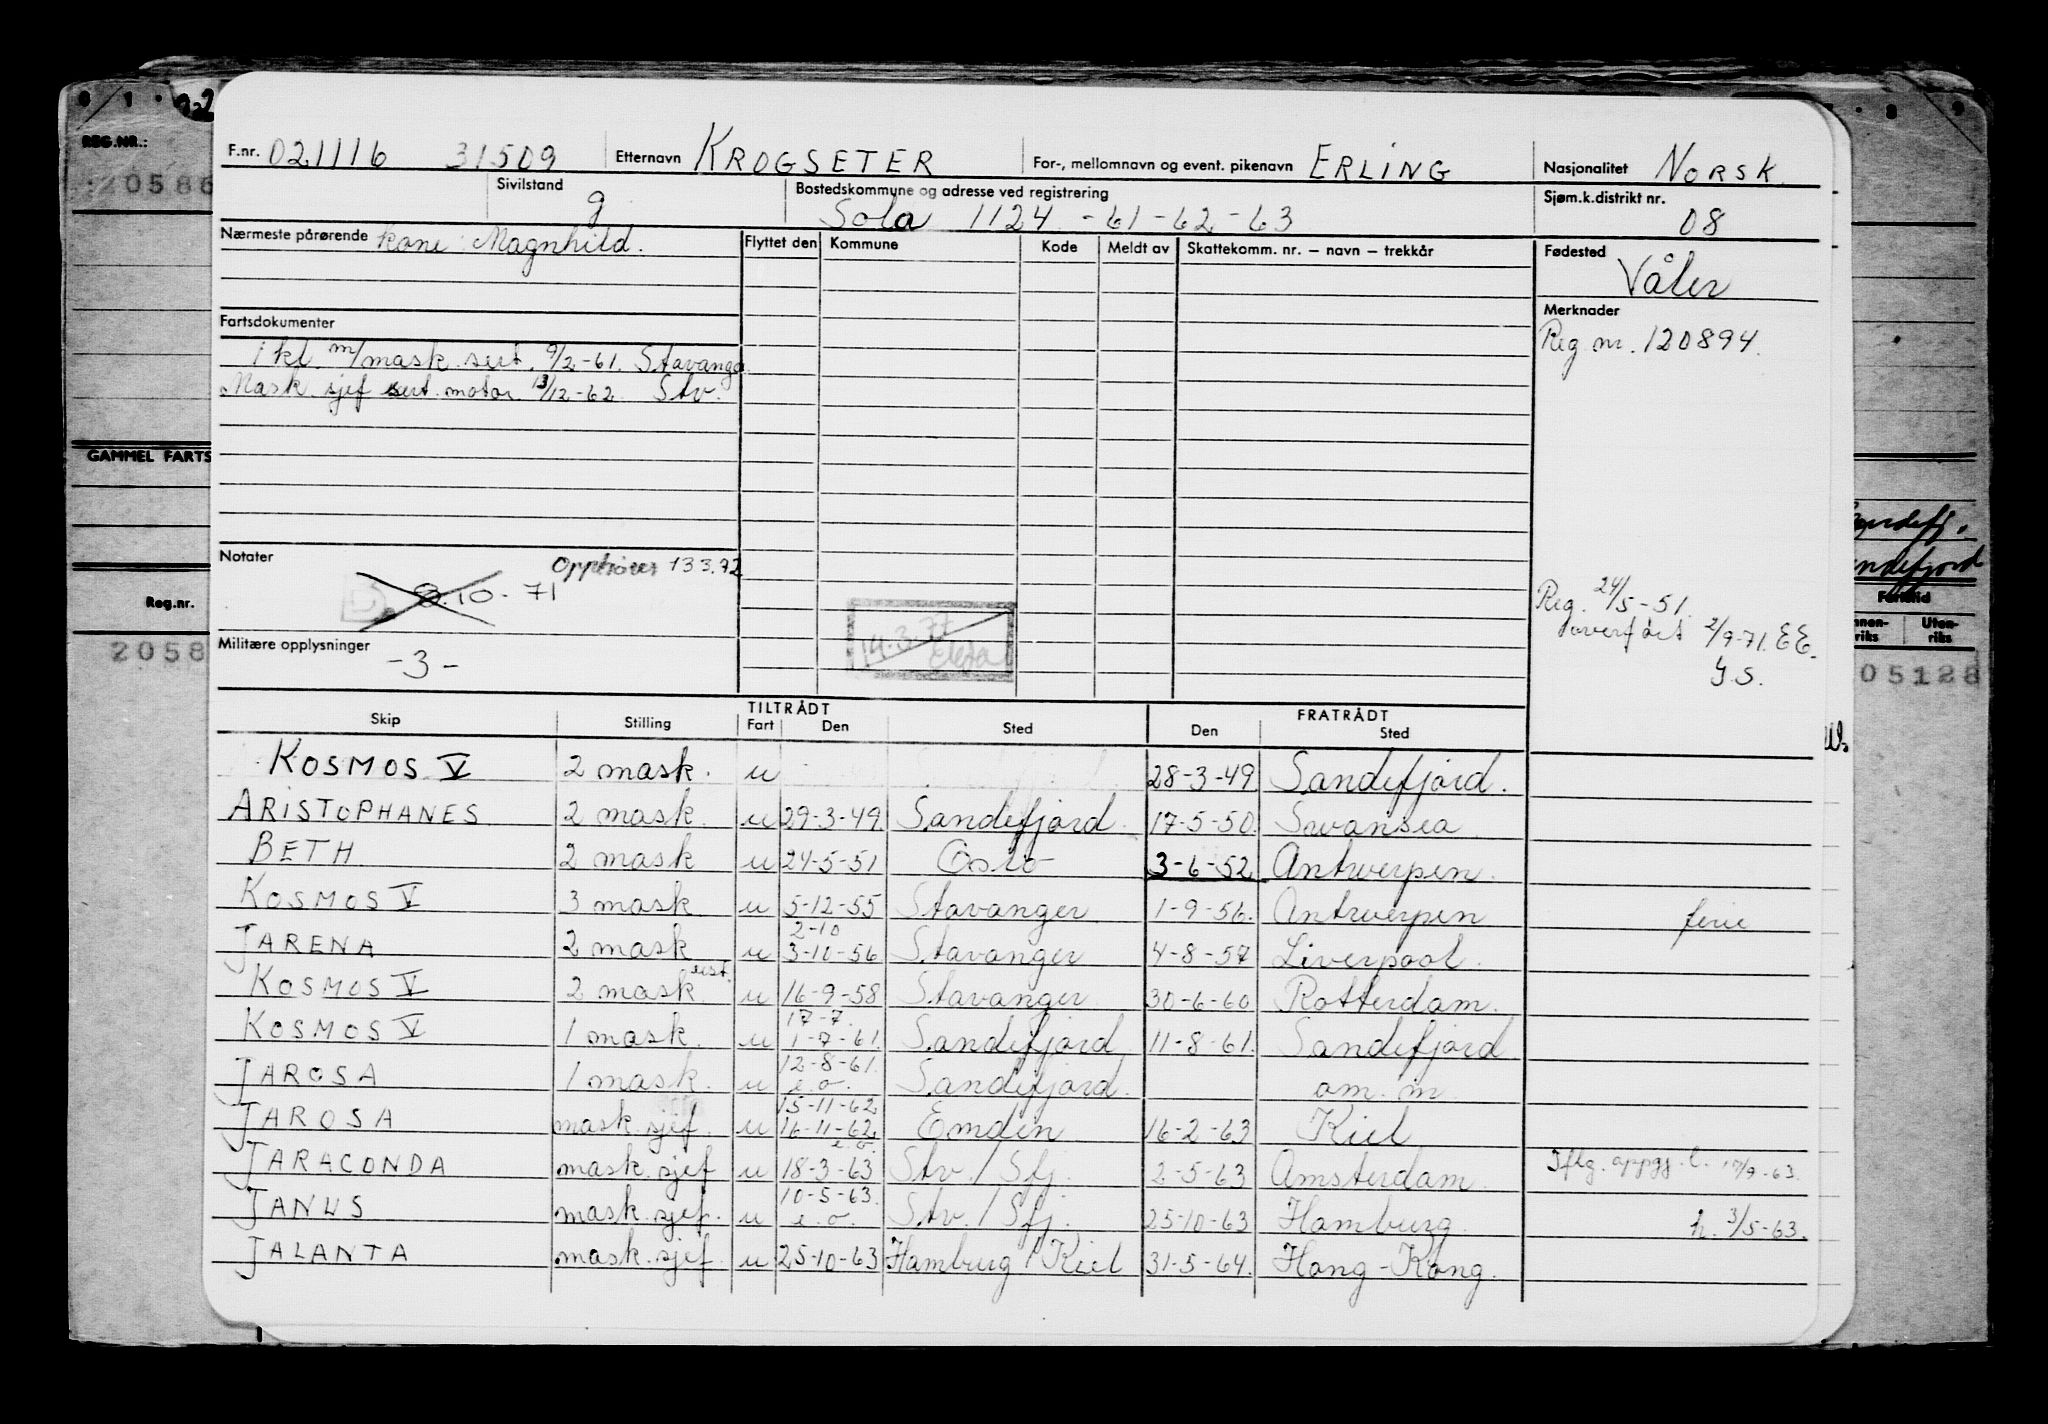 F.nr. 021116 31509 Etternavn KROGSETER For-, mellomnavn og event. pikenavn ERLING Nasjonalitet NORSK
Sivilstand g Bostedskommune og adresse ved registrering Sola 1124 -61-62-63 Sjøm.k.distrikt nr. 08
Nærmeste pårørende kone: Magnhild. Flyttet den Kommune Kode Meldt av Skattekomm. nr. – navn – trekkår Fødested Våler
Fartsdokumenter Merknader
1 kl. m/mask. sert. 9/2-61. Stavanger Reg nr. 120894.
Mask. sjef sert. motor 13/12-62. Stv.
Notater Opphører 13.3.72
8.10-71
14.3.77
Militære opplysninger -3-
Reg. 24/5-51.
overført 2/9-71. EE.
Y.S.
TILTRÅDT FRATRÅDT
Skip Stilling Fart Den Sted Den Sted
KOSMOS V 2 mask. u 28-3-49 Sandefjord.
ARISTOPHANES 2 mask. u 29-3-49. Sandefjord. 17-5-50. Swansea
BETH 2 mask u 24-5-51 Oslo 3-6-52 Antwerpen.
KOSMOS V 3 mask u 5-12-55 Stavanger 1-9-56. Antwerpen ferie
2-10
JARENA 2 mask u 3-10-56 Stavanger 4-8-57 Liverpool.
KOSMOS V 2 mask eist. u 16-9-58 Stavanger 30-6-60 Rotterdam.
17-7.
KOSMOS V 1 mask. u 1-7-61. Sandefjord 11-8-61. Sandefjord
12-8-61.
JAROSA 1 mask. u e.o. Sandefjord. om. m
15-11-62
JAROSA mask. sjef. u 16-11-62 e.o. Emden 16-2-63 Kiel
JARACONDA mask. sjef u 18-3-63 Stv. / Sfj. 2-5-63 Amsterdam. Iflg. oppgj. l. 17/9-63.
10-5-63.
JANUS mask. sjef. u e.o. Stv. / Sfj. 25-10-63 Hamburg. h. 3/5-63.
JALANTA mask. sjef. u 25-10-63 Hamburg / Kiel 31-5-64. Hong-Kong.
REG.NR.:
20586
GAMMEL FARTS
Reg.nr.
2058
Sandefj.
Sandefjord
Fartstid
Innen-riks Uten-riks
05128